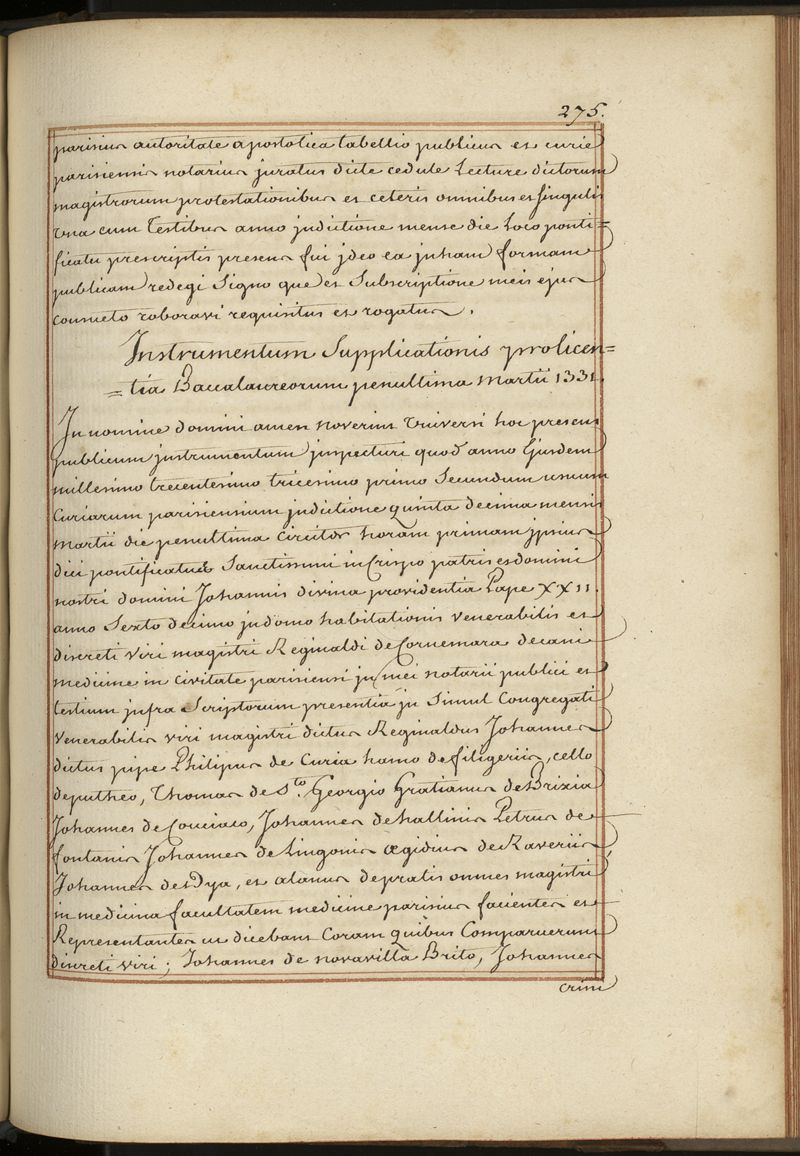 275.
parisius autoritate apostolica tabellio publicus et curie
parisiensis notarius juratus dicte cedule Lecture dictorum
magistrorum protestationibus et ceteris omnibus et singulis
una cum testibus anno judictione mense die Loco ponti=
ficatu prescriptis presens fui jdeo ea in hanc formam
publicam redegi Signo que et Subscriptione meis ejus
consueto roboravi requisitus et rogatus.
Instrumentum Supplicationis pro licen=
=tia Baccalaureorum penultima Martii 1331.
In nomine domini amen noverint Universi hoc presens
publicum justrumentum juspecturi quod anno Ejusdem
millesimo trecentesimo tricesimo primo Secundum usum
Curiarum parisiensium judictione quinta decima mensis
Martii die penultima circiter horam primam jpsius
diei pontificatus Sanctissimi in Crispo patris et domini
nostri domini Johannis divina providentia Pape XXII.
anno Sexto decimo ju domo habitationis venerabilis et
discreti viri magistri Reginaldi de Cornemara decani
medicine in civitate parisiensi ju mei notarii publici et
testium jnfra Scriptorum presentia ju Simul Congregati
Venerabilis viri magistri dictus Reginaldus Johannes
dictus pipe Philipus de Curia homo de filigeriis, cello
de putheo, Thomas de Sto. Georgio Gratianus de Brixia
Johannes de Conciaco, Johannes de hallinis Petrus de
fontanis Johannes de Lingonis Ægidius de Raveriis
Johannes de Dya, et alanus de pratis omnes magistri
in medicina facultatem medicine parisius facientes et
Representantes ut dicebant Coram quibus Comparuerunt
discreti viri; Johannes de novavilla Brito, Johannes
crini